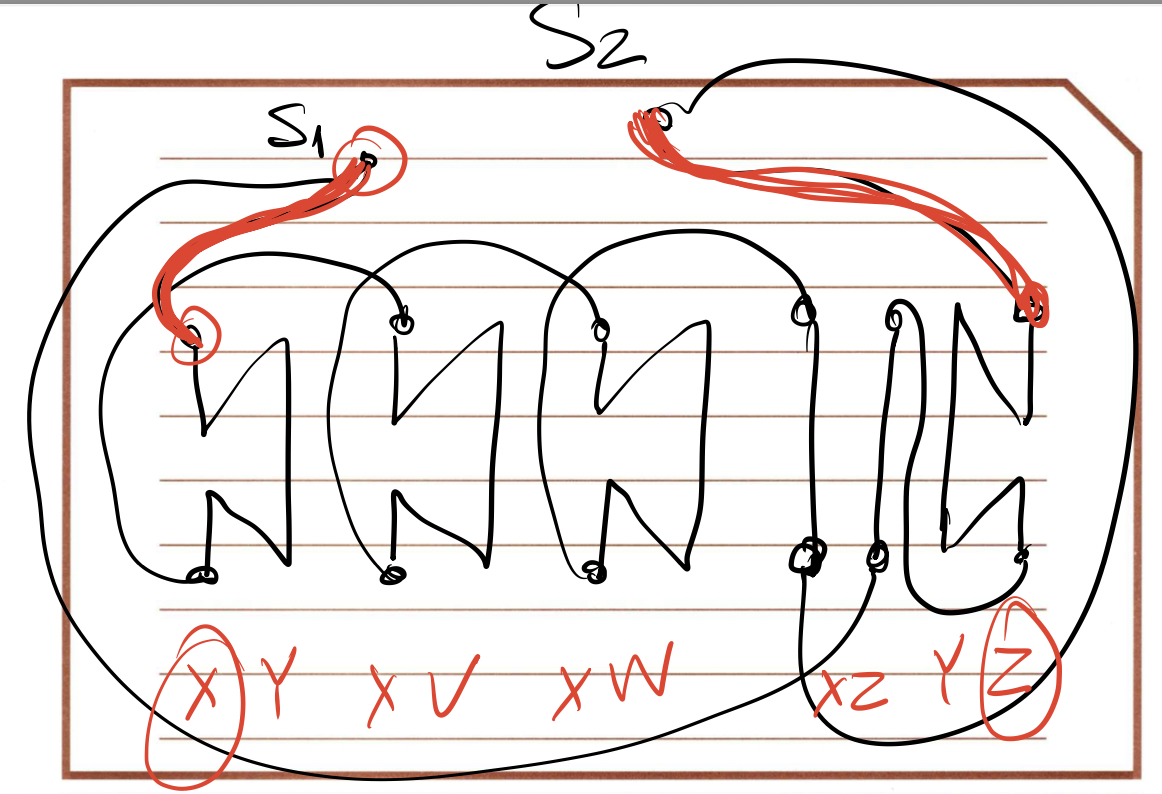 S2
S1
XY XV XW XZ YZ